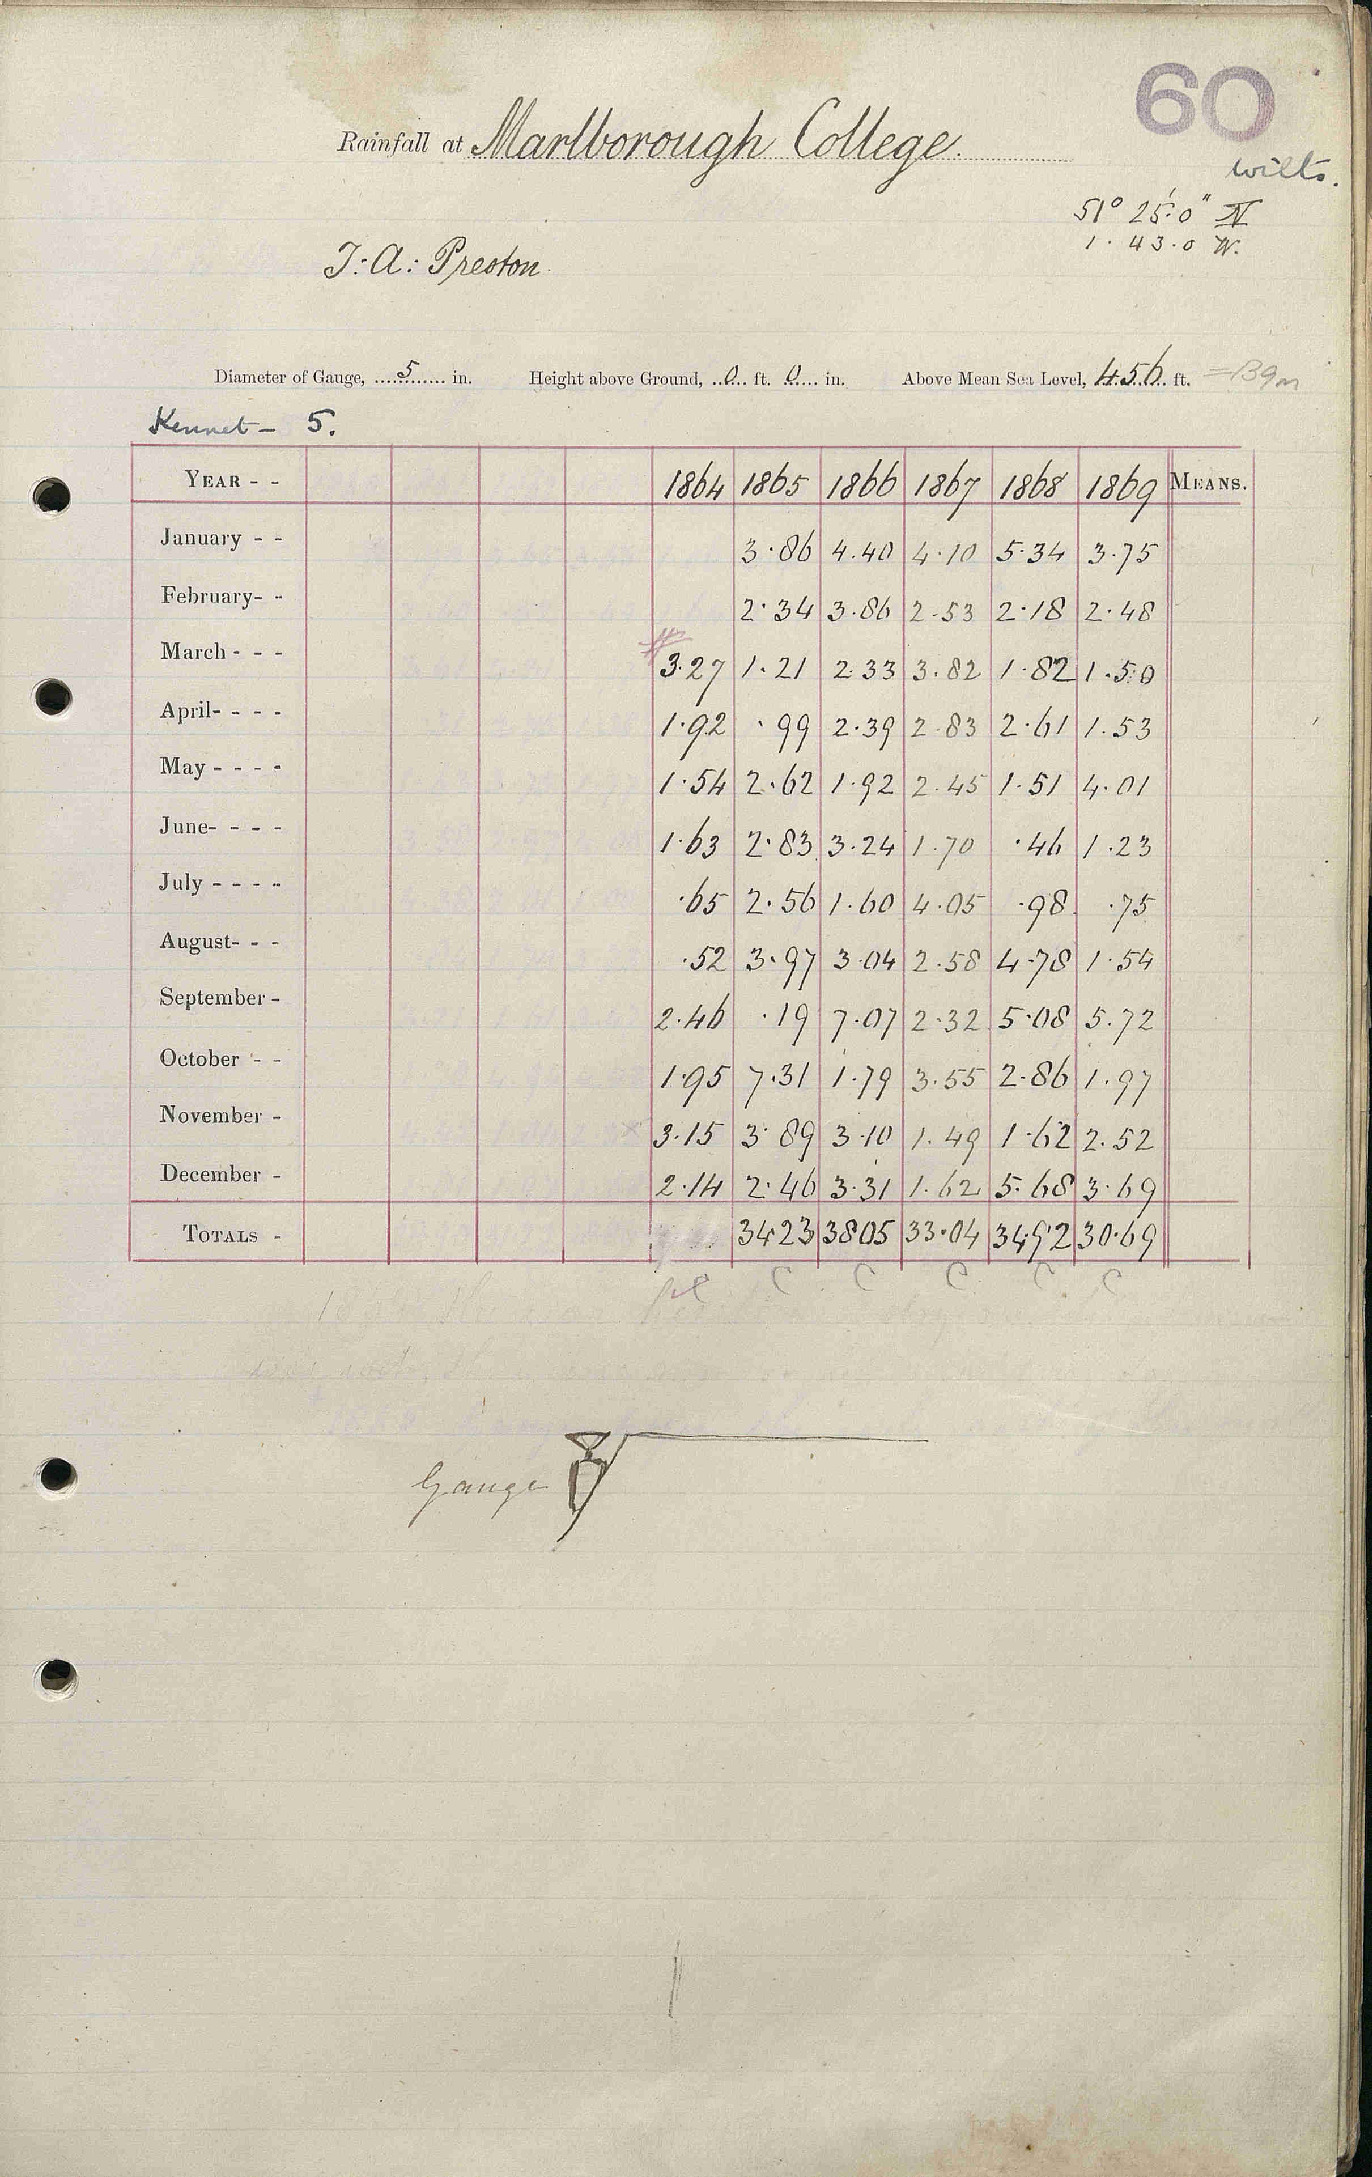 60
Rainfall at Marlborough College.
Wilts.
51° 25' 0" N
1 . 43 . 0 W.
T: A: Preston
Diameter of Gauge, 5 in. Height above Ground, 0 ft. 0 in. Above Mean Sea Level, 456 ft. =139m
Kennet - 5.
YEAR - - 1864 1865 1866 1867 1868 1869 MEANS.
January - - 3.86 4.40 4.10 5.34 3.75
February- - 2.34 3.86 2.53 2.18 2.48
March - - - 3.27 1.21 2.33 3.82 1.82 1.50
April- - - - 1.92 .99 2.39 2.83 2.61 1.53
May - - - - 1.54 2.62 1.92 2.45 1.51 4.01
June- - - - 1.63 2.83 3.24 1.70 .46 1.23
July - - - - .65 2.56 1.60 4.05 .98 .75
August- - - .52 3.97 3.04 2.58 4.78 1.54
September - 2.46 .19 7.07 2.32 5.08 5.72
October - - 1.95 7.31 1.79 3.55 2.86 1.97
November - 3.15 3.89 3.10 1.49 1.62 2.52
December - 2.14 2.46 3.31 1.62 5.68 3.69
TOTALS - 34.23 38.05 33.04 34.92 30.69
C C C C C
Gauge